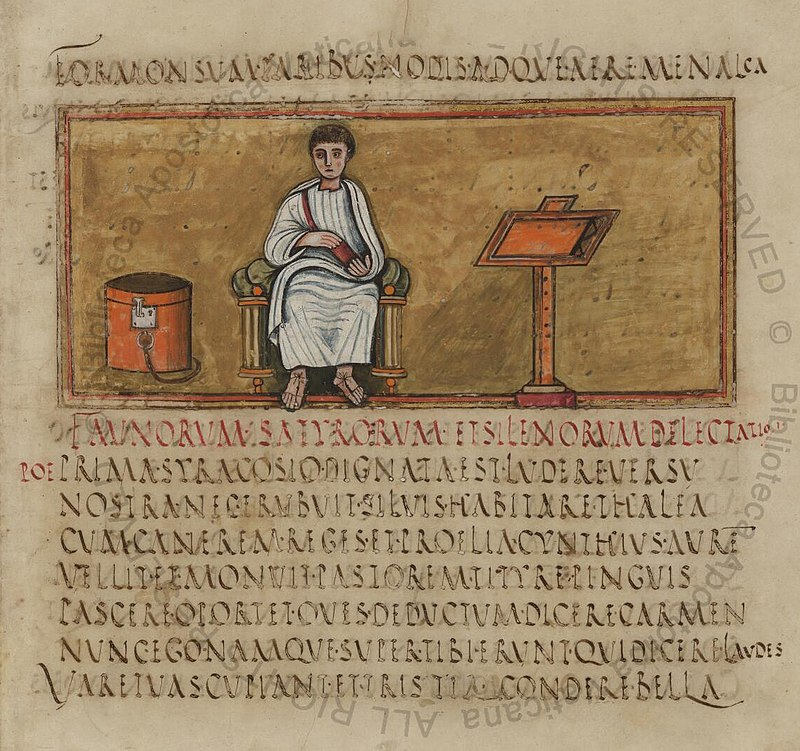 FORMONSVM·PARIBVS·NODIS·ADQVE·AERE·MENALCA
FAVNORVM·SATYRORVM·ET·SILENORVM·DELECTATIO
POE PRIMA·SYRACOSIO·DIGNATA·EST·LVDERE·VERSV
NOSTRA·NEC·ERVBVIT·SILVIS·HABITARE·THALEA
CVM·CANEREM·REGES·ET·PROELIA·CYNTHIVS·AVRE
VELLIT·ET·EMONVIT·PASTOREM·TITYRE·PINGVIS
PASCERE·OPORTET·OVES·DEDVCTVM·DICERE·CARMEN
NVNC·EGO·NAMQVE·SVPER·TIBI·ERVNT·QVI·DICERE·LAVDES
VARE·TVAS·CVPIANT·ET·TRISTIA·CONDERE·BELLA
© Biblioteca Apostolica Vaticana ALL RIGHTS RESERVED